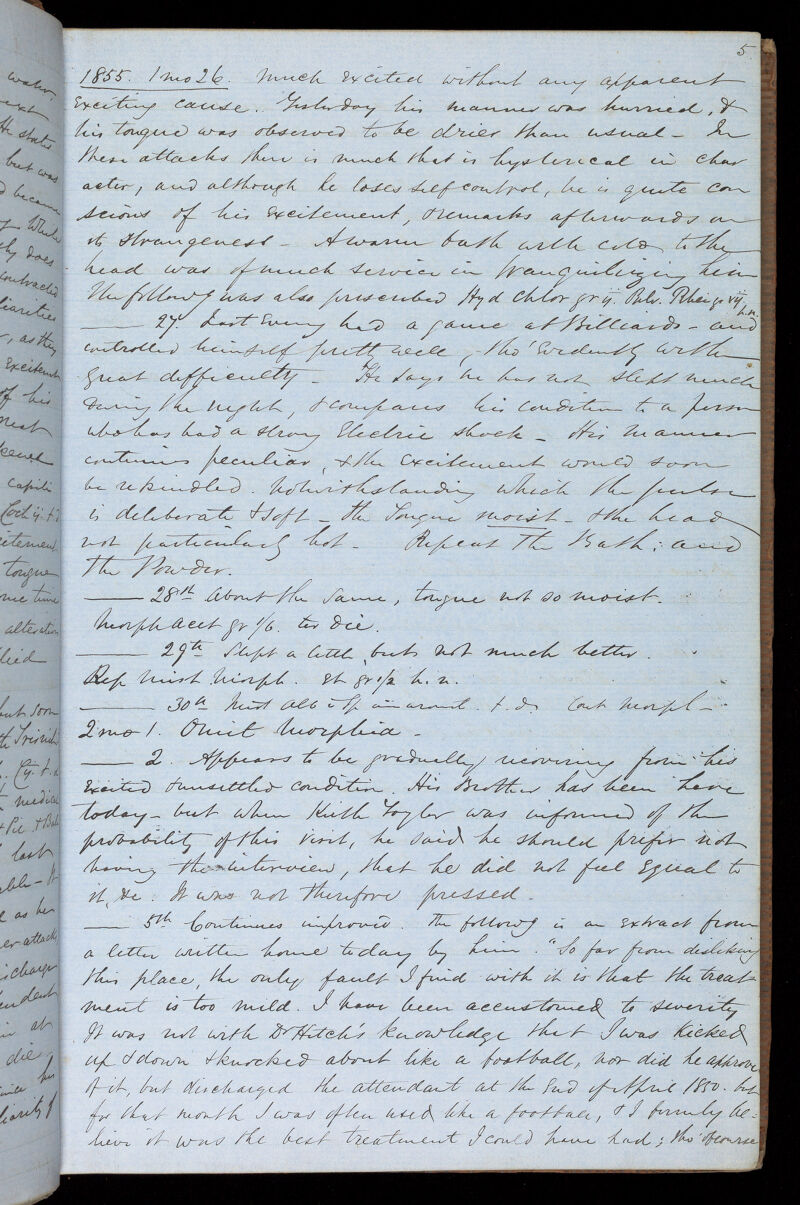 5
1855. 1 mo 26. Much excited without any apparent
exciting cause. Yesterday his manner was hurried, &
his tongue was observed to be drier than usual - In
these attacks there is much that is hysterical in char
acter, and although he loses self control, he is quite con
scious of his excitement, & remarks afterwards on
its strangeness - A warm bath with cold to the
head was of much service in tranquilizing him
The followg was also prescribed Hyd Chlor gr ij. Pulv. Rhei gr vij h.n.
—— 27 Last Evening had a game at Billiards - and
controlled himself prett well, tho' Evidently with
great difficulty - He says he has not slept much
during the night, & compares his condition to a person
who has had a strong Electric shock - His manner
continues peculiar, & the excitement would soon
be rekindled. Notwithstanding which the pulse
is deliberate & soft - the Tongue moist - & the head
not particularly hot - Repeat the Bath; and
the Powder.
—— 28th About the same, tongue not so moist.
Morph Acet gr 1/6. ter die.
—— 29th Slept a little, but not much better.
Rep Mist Morph. et gr 1/2 h.n.
—— 30th Mist Alb t.d. Cont Morph -
2 mo 1. Omit Morphia -
—— 2. Appears to be gradually recovering from his
excited & unsettled condition. His Brother has been here
today - but when Keith Taylor was informed of the
probability of this visit, he said he should prefer not
having the interview, that he did not feel Equal to
it, &c. It was not therefore pressed.
—— 5th Continues improved. The followg is an extract from
a letter written home today by him. "So far from disliking
this place, the only fault I find with it is that the treat
ment is too mild. I have been accustomed to severity
It was not with Dr Hitch's knowledge that I was kicked
up & down & knocked about like a football, nor did he approve
of it, but discharged the attendant at the End of April 1850. but
for that month I was often used like a football, & I firmly be=
lieve it was the best treatment I could have had; tho' of course